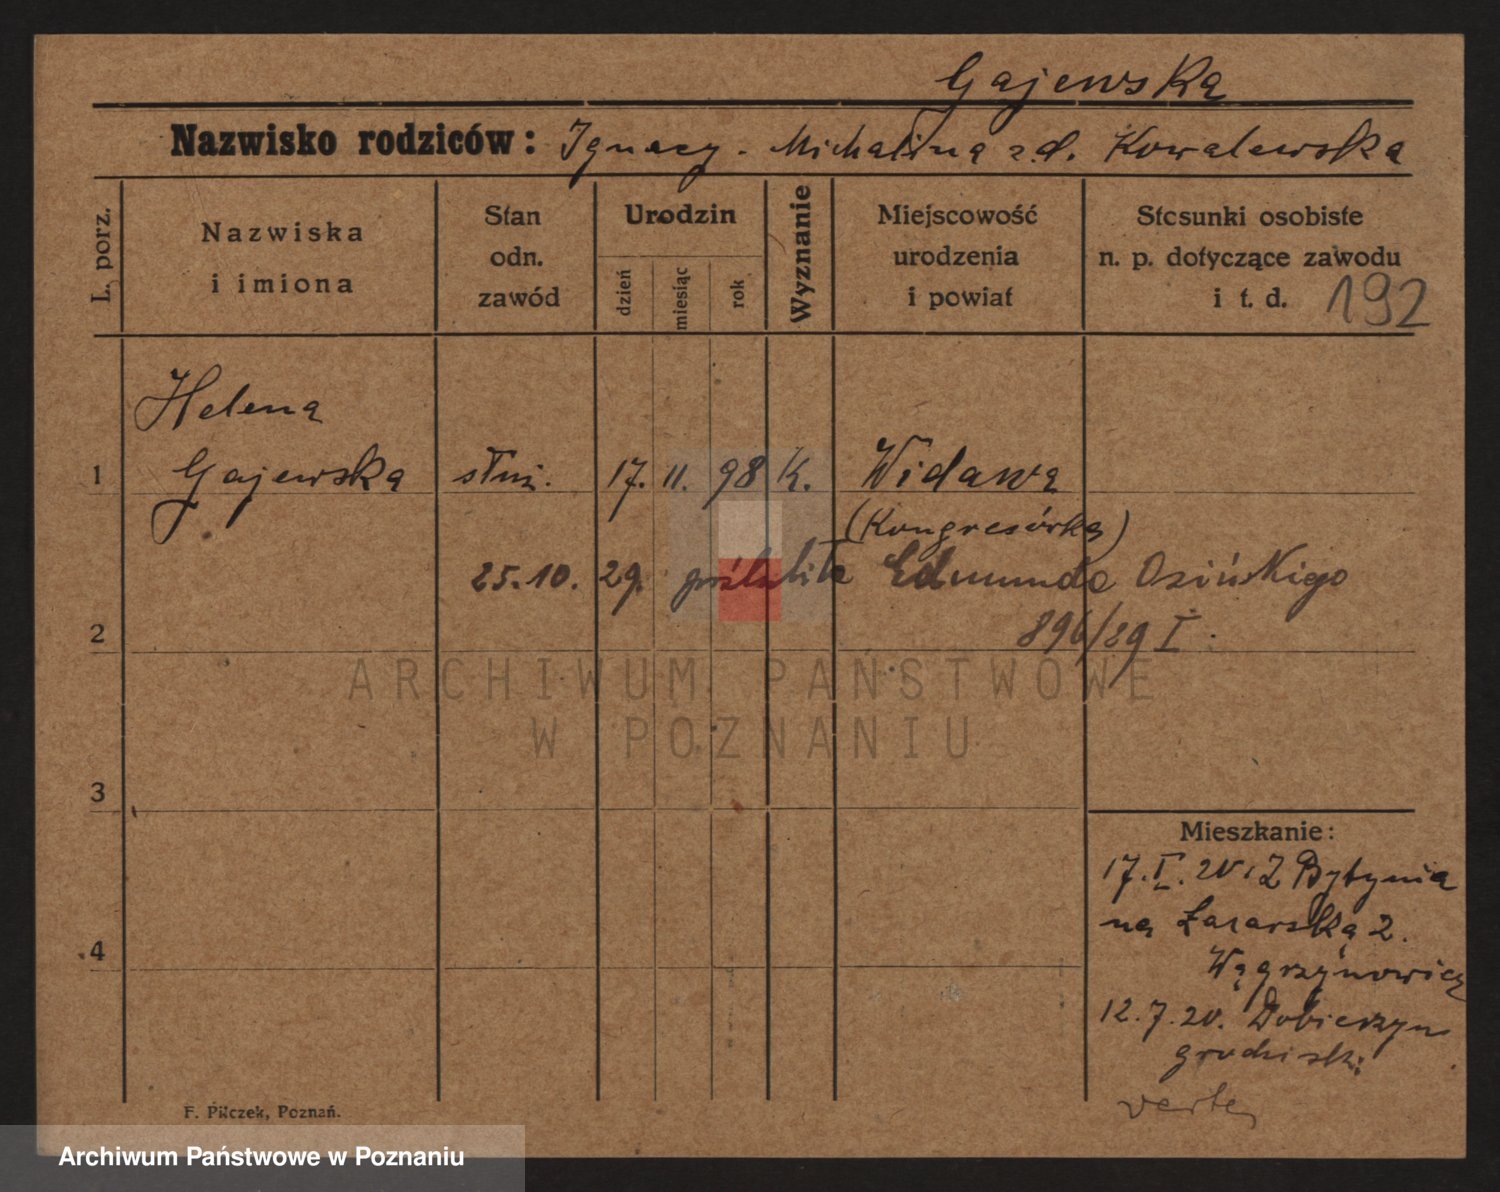 Gajewska
Nazwisko rodziców: Ignacy - Michalina z d. Kowalewska
L. porz.
Nazwiska
i imiona
Stan
odn.
zawód
Urodzin
dzień
miesiąc
rok
Wyznanie
Miejscowość
urodzenia
i powiat
Stosunki osobiste
n. p. dotyczące zawodu
i t. d.
192
Helena
1 Gajewska służ. 17. 11. 98 K. Widawa
(Kongresówka)
25.10. 29. poślubiła Edmunda Osińskiego
896/29 I.
2
3
4
Mieszkanie:
17. I. 20. Z Bytynia
na Łazarską 2.
Wągrzynowicz
12.7.20. Dobieżyn
grodziski
verte
F. Pilczek, Poznań.
ARCHIWUM PAŃSTWOWE
W POZNANIU
Archiwum Państwowe w Poznaniu